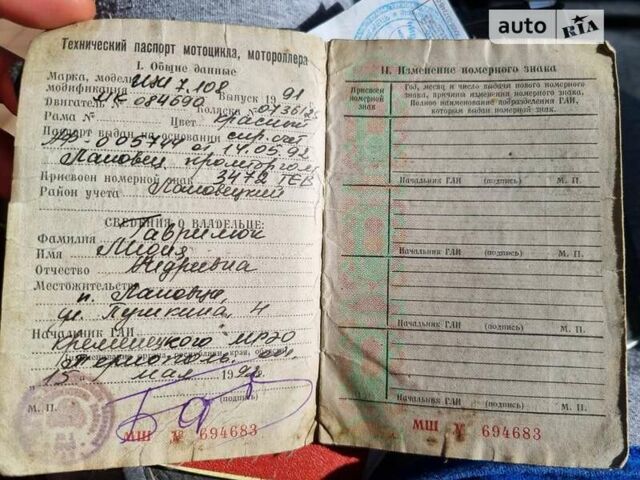 auto RIA
Технический паспорт мотоцикла, мотороллера
I. Общие данные
Марка, модель ИЖ 7.108
модификация Выпуск 1991
Двигатель № 084690 Коляска
Рама № Цвет красный
Паспорт выдан на основании спр. счёт
005744 от 14.05.92
Лановец
Присвоен номерной знак 3472 ТЕВ
Район учета Лановецкий
СВЕДЕНИЯ О ВЛАДЕЛЬЦЕ:
Фамилия Гаврилюк
Имя Лидия
Отчество Андріївна
Местожительство
п. Лановцы,
ул. Пушкина, 4
Начальник ГАИ
Кременецкого МРЭО
15 мая 199
М. П. (подпись)
МШ № 694683
II. Изменение номерного знака
Присвоен номерной знак
Год, месяц и число выдачи нового номерного
знака, причина изменения номерного знака.
Полное наименование подразделения ГАИ,
которым выдан номерной знак.
Начальник ГАИ (подпись) М. П.
Начальник ГАИ (подпись) М. П.
Начальник ГАИ (подпись) М. П.
Начальник ГАИ (подпись) М. П.
МШ № 694683